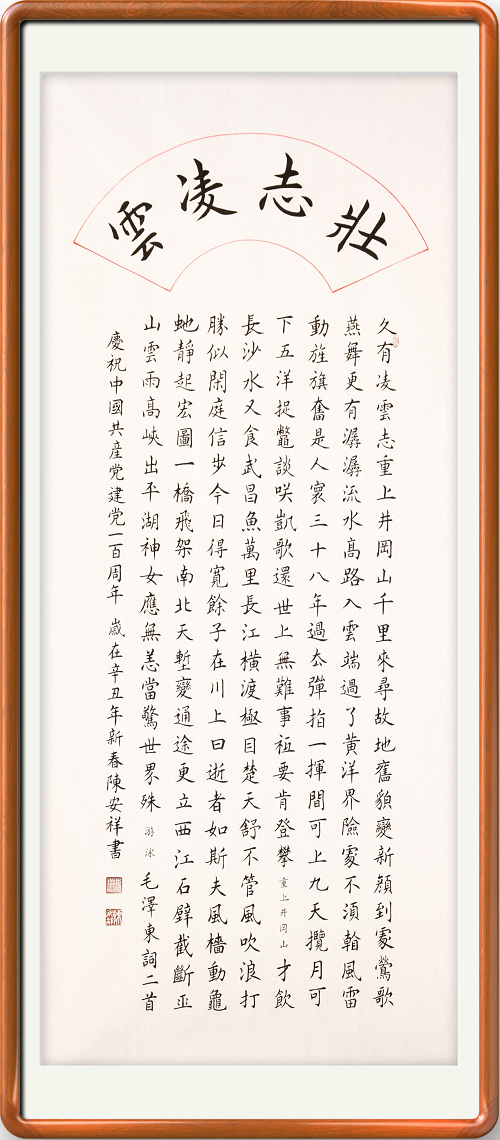 壯志凌雲
久有凌雲志重上井岡山千里來尋故地舊貌變新顏到處鶯歌
燕舞更有潺潺流水高路入雲端過了黃洋界險處不須看風雷
動旌旗奮是人寰三十八年過去彈指一揮間可上九天攬月可
下五洋捉鱉談咲凱歌還世上無難事祗要肯登攀 重上井冈山 才飲
長沙水又食武昌魚萬里長江橫渡極目楚天舒不管風吹浪打
勝似閑庭信步今日得寬餘子在川上曰逝者如斯夫風檣動龜
虵靜起宏圖一橋飛架南北天塹變通途更立西江石壁截斷巫
山雲雨高峽出平湖神女應無恙當驚世界殊 游泳 毛澤東詞二首
慶祝中國共產党建党一百周年 歲在辛丑年新春陳安祥書